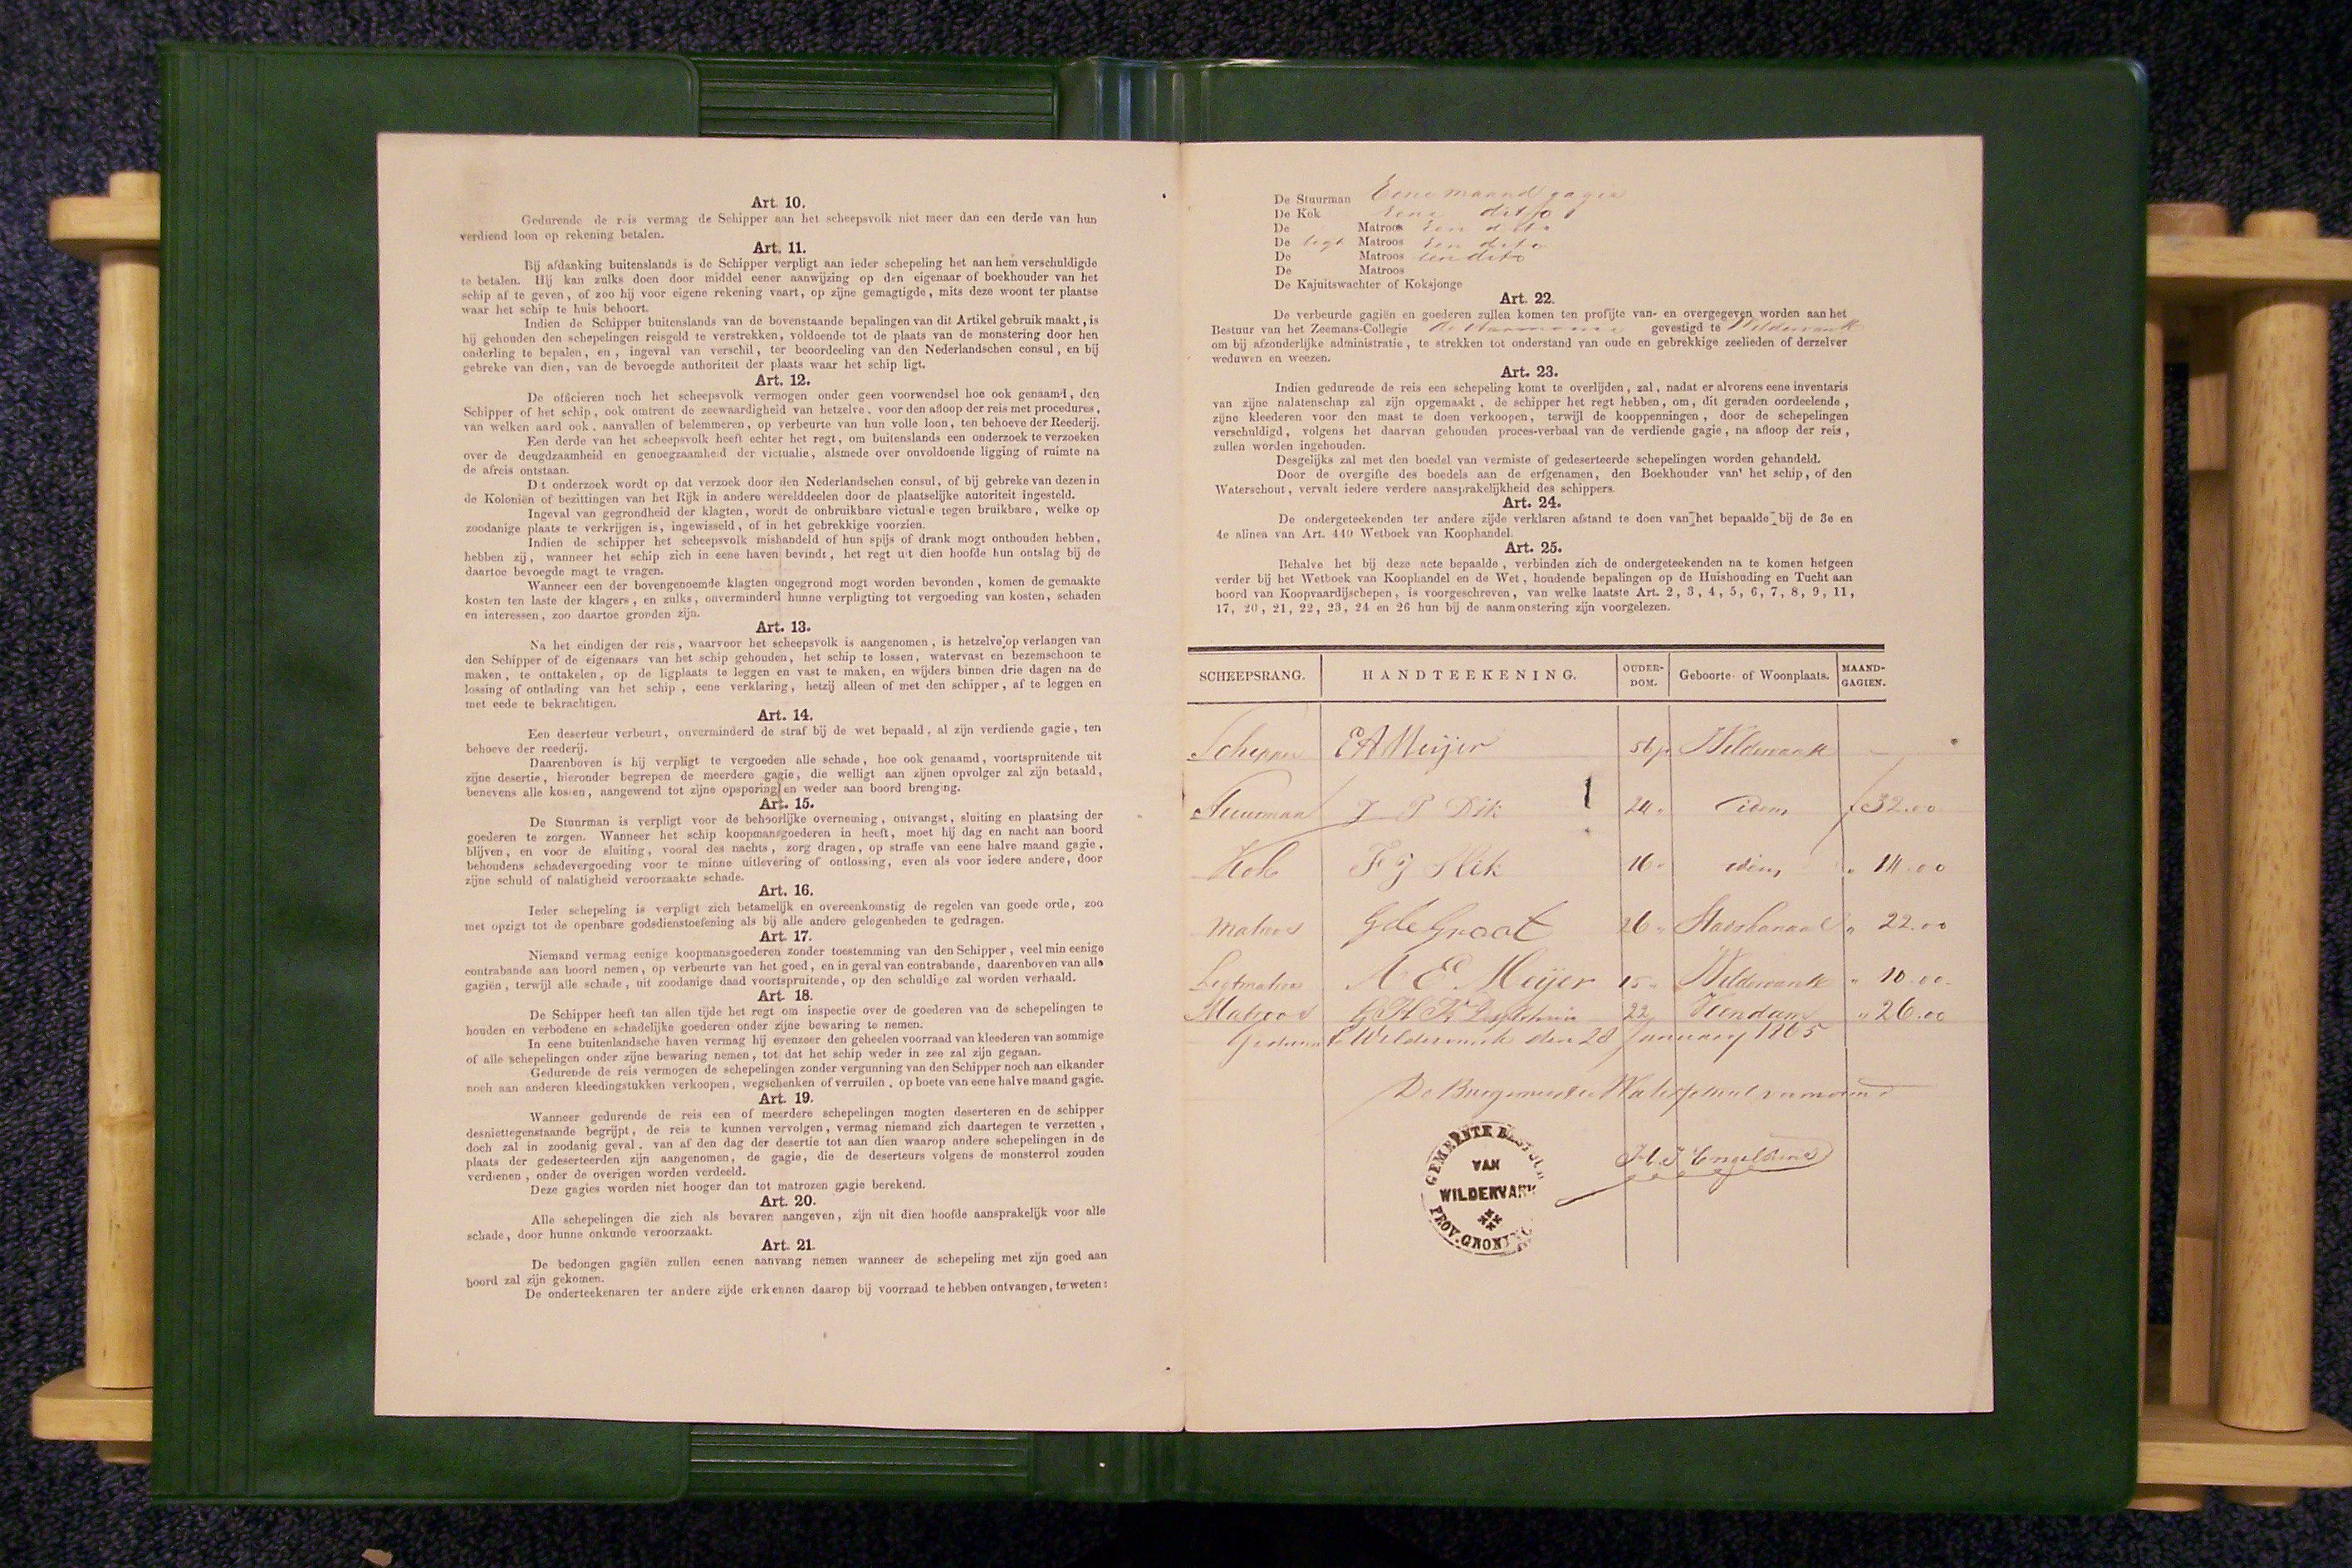 Art. 10.
Gedurende de reis vermag de Schipper aan het scheepsvolk niet meer dan een derde van hun
verdiend loon op rekening betalen.
Art. 11.
Bij afdanking buitenslands is de Schipper verpligt aan ieder schepeling het aan hem verschuldigde
te betalen. Hij kan zulks doen door middel eener aanwijzing op den eigenaar of boekhouder van het
schip af te geven, of zoo hij voor eigene rekening vaart, op zijne gemagtigde, mits deze woont ter plaatse
waar het schip te huis behoort.
Indien de Schipper buitenslands van de bovenstaande bepalingen van dit Artikel gebruik maakt, is
hij gehouden den schepelingen reisgeld te verstrekken, voldoende tot de plaats van de monstering door hen
onderling te bepalen, en, ingeval van verschil, ter beoordeeling van den Nederlandschen consul, en bij
gebreke van dien, van de bevoegde authoriteit der plaats waar het schip ligt.
Art. 12.
De officieren noch het scheepsvolk vermogen onder geen voorwendsel hoe ook genaamd, den
Schipper of het schip, ook omtrent de zeewaardigheid van hetzelve, voor den afloop der reis met procedures,
van welken aard ook, aanvallen of belemmeren, op verbeurte van hun volle loon, ten behoeve der Reederij.
Een derde van het scheepsvolk heeft echter het regt, om buitenslands een onderzoek te verzoeken
over de deugdzaamheid en genoegzaamheid der victualie, alsmede over onvoldoende ligging of ruimte na
de afreis ontstaan.
D t onderzoek wordt op dat verzoek door den Nederlandschen consul, of bij gebreke van dezen in
de Koloniën of bezittingen van het Rijk in andere werelddeelen door de plaatselijke autoriteit ingesteld.
Ingeval van gegrondheid der klagten, wordt de onbruikbare victual e tegen bruikbare, welke op
zoodanige plaats te verkrijgen is, ingewisseld, of in het gebrekkige voorzien.
Indien de schipper het scheepsvolk mishandeld of hun spijs of drank mogt onthouden hebben,
hebben zij, wanneer het schip zich in eene haven bevindt, het regt uit dien hoofde hun ontslag bij de
daartoe bevoegde magt te vragen.
Wanneer een der bovengenoemde klagten ongegrond mogt worden bevonden, komen de gemaakte
kosten ten laste der klagers, en zulks, onverminderd hunne verpligting tot vergoeding van kosten, schaden
en interessen, zoo daartoe gronden zijn.
Art. 13.
Na het eindigen der reis, waarvoor het scheepsvolk is aangenomen, is hetzelve op verlangen van
den Schipper of de eigenaars van het schip gehouden, het schip te lossen, watervast en bezemschoon te
maken, te onttakelen, op de ligplaats te leggen en vast te maken, en wijders binnen drie dagen na de
lossing of ontlading van het schip, eene verklaring, hetzij alleen of met den schipper, af te leggen en
met eede te bekrachtigen.
Art. 14.
Een deserteur verbeurt, onverminderd de straf bij de wet bepaald, al zijn verdiende gagie, ten
behoeve der reederij.
Daarenboven is hij verpligt te vergoeden alle schade, hoe ook genaamd, voortspruitende uit
zijne desertie, hieronder begrepen de meerdere gagie, die welligt aan zijnen opvolger zal zijn betaald,
benevens alle kosten, aangewend tot zijne opsporing en weder aan boord brenging.
Art. 15.
De Stuurman is verpligt voor de behoorlijke overneming, ontvangst, sluiting en plaatsing der
goederen te zorgen. Wanneer het schip koopmansgoederen in heeft, moet hij dag en nacht aan boord
blijven, en voor de sluiting, vooral des nachts, zorg dragen, op straffe van eene halve maand gagie,
behoudens schadevergoeding voor te minne uitlevering of ontlossing, even als voor iedere andere, door
zijne schuld of nalatigheid veroorzaakte schade.
Art. 16.
Ieder schepeling is verpligt zich betamelijk en overeenkomstig de regelen van goede orde, zoo
met opzigt tot de openbare godsdienstoefening als bij alle andere gelegenheden te gedragen.
Art. 17.
Niemand vermag eenige koopmansgoederen zonder toestemming van den Schipper, veel min eenige
contrabande aan boord nemen, op verbeurte van het goed, en in geval van contrabande, daarenboven van alle
gagiën, terwijl alle schade, uit zoodanige daad voortspruitende, op den schuldige zal worden verhaald.
Art. 18.
De Schipper heeft ten allen tijde het regt om inspectie over de goederen van de schepelingen te
houden en verbodene en schadelijke goederen onder zijne bewaring te nemen.
In eene buitenlandsche haven vermag hij evenzeer den geheelen voorraad van kleederen van sommige
of alle schepelingen onder zijne bewaring nemen, tot dat het schip weder in zee zal zijn gegaan.
Gedurende de reis vermogen de schepelingen zonder vergunning van den Schipper noch aan elkander
noch aan anderen kleedingstukken verkoopen, wegschenken of verruilen, op boete van eene halve maand gagie.
Art. 19.
Wanneer gedurende de reis een of meerdere schepelingen mogten deserteren en de schipper
desniettegenstaande begrijpt, de reis te kunnen vervolgen, vermag niemand zich daartegen te verzetten,
doch zal in zoodanig geval, van af den dag der desertie tot aan dien waarop andere schepelingen in de
plaats der gedeserteerden zijn aangenomen, de gagie, die de deserteurs volgens de monsterrol zouden
verdienen, onder de overigen worden verdeeld.
Deze gagies worden niet hooger dan tot matrozen gagie berekend.
Art. 20.
Alle schepelingen die zich als bevaren aangeven, zijn uit dien hoofde aansprakelijk voor alle
schade, door hunne onkunde veroorzaakt.
Art. 21.
De bedongen gagiën zullen eenen aanvang nemen wanneer de schepeling met zijn goed aan
boord zal zijn gekomen.
De onderteekenaren ter andere zijde erkennen daarop bij voorraad te hebben ontvangen, te weten:
De Stuurman Eene maand gagie
De Kok Eene ditto
De Matroos Een dito
De ligt Matroos Een dito
De Matroos Een dito
De Matroos
De Kajuitswachter of Koksjonge
Art. 22.
De verbeurde gagiën en goederen zullen komen ten profijte van- en overgegeven worden aan het
Bestuur van het Zeemans-Collegie de Harmonie gevestigd te Wildervank
om bij afzonderlijke administratie, te strekken tot onderstand van oude en gebrekkige zeelieden of derzelver
weduwen en weezen.
Art. 23.
Indien gedurende de reis een schepeling komt te overlijden, zal, nadat er alvorens eene inventaris
van zijne nalatenschap zal zijn opgemaakt, de schipper het regt hebben, om, dit geraden oordeelende,
zijne kleederen voor den mast te doen verkoopen, terwijl de kooppenningen, door de schepelingen
verschuldigd, volgens het daarvan gehouden proces-verbaal van de verdiende gagie, na afloop der reis,
zullen worden ingehouden.
Desgelijks zal met den boedel van vermiste of gedeserteerde schepelingen worden gehandeld.
Door de overgifte des boedels aan de erfgenamen, den Boekhouder van het schip, of den
Waterschout, vervalt iedere verdere aansprakelijkheid des schippers.
Art. 24.
De ondergeteekenden ter andere zijde verklaren afstand te doen van het bepaalde bij de 3e en
4e alinea van Art. 440 Wetboek van Koophandel.
Art. 25.
Behalve het bij deze acte bepaalde, verbinden zich de ondergeteekenden na te komen hetgeen
verder bij het Wetboek van Koophandel en de Wet, houdende bepalingen op de Huishouding en Tucht aan
boord van Koopvaardijschepen, is voorgeschreven, van welke laatste Art. 2, 3, 4, 5, 6, 7, 8, 9, 11,
17, 20, 21, 22, 23, 24 en 26 hun bij de aanmonstering zijn voorgelezen.
SCHEEPSRANG. HANDTEEKENING. OUDER-DOM. Geboorte- of Woonplaats. MAAND-GAGIEN.
Schipper EA Meijer 56 j. Wildervank —
Stuurman J P Dik 24 " idem f 32.00
Kok F J Slik 16 " idem " 14.00
Matroos G de Groot 26 " Stadskanaal " 22.00
Ligtmatroos A E Meijer 15 " Wildervank " 10.00
Matroos 22 Veendam " 26.00
te Wildervank den 28 January 1865
De Burgemeester Waterschout
GEMEENTE BESTUUR
VAN
WILDERVANK
PROV. GRONING